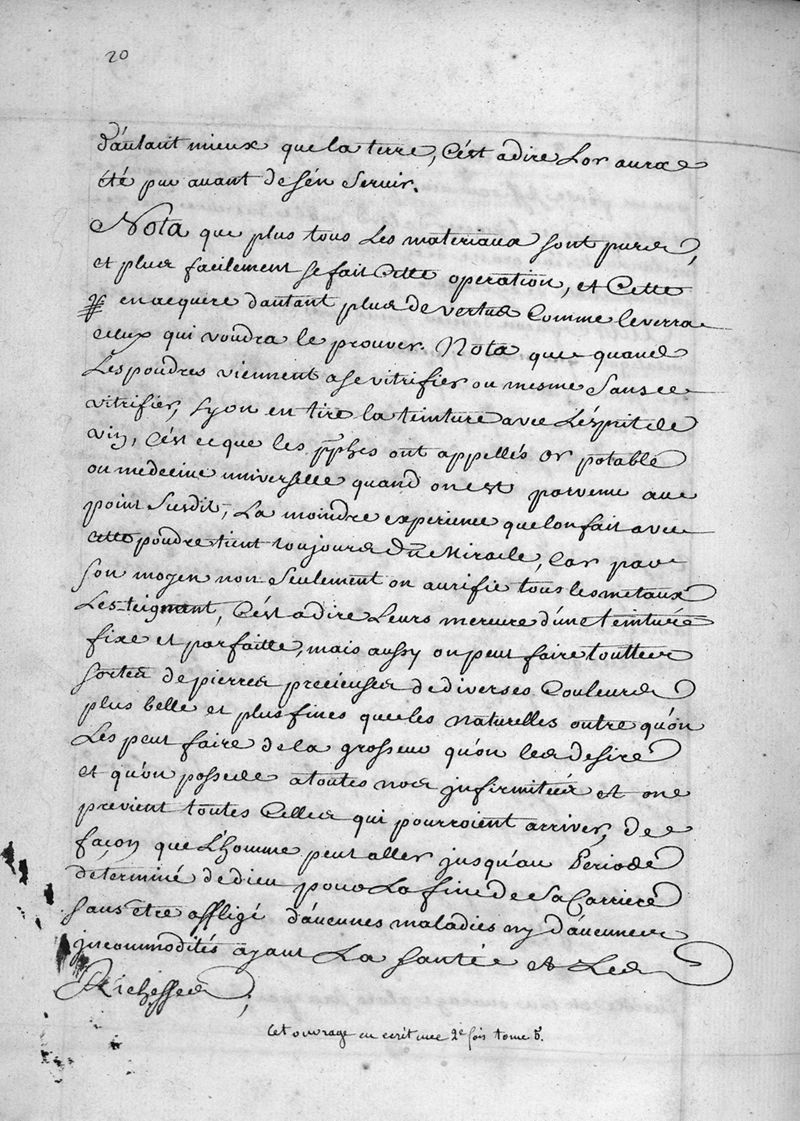 20
d'autant mieux que la terre, c'est adire Lor aura
été par auant de s'en Seruir.
Nota que plus tous Les materiaux sont purs,
et plus facilement se fait Cette operation, et Cette
en acquiere d'autant plus de vertus Comme le verra
celux qui voudra le prouver. Nota que quand
Les poudres viennent a se vitrifier ou mesme Sans ce
vitrifier, Sy on en tire la teinture avec L'esprit de
vin, C'est ce que les pphes ont appellés Or potable
ou medecine universelle quand on est parvenu au
point Susdit, La moindre experience que lon fait avec
cette poudre tient toujours du Miracle, Car par
son moyen non Seulement on aurifie tous les metaux
Les teignant, C'est adire Leurs mercure d'une teinture
fixe et parfaitte, mais aussy on peut faire touttes
sortes de pierres precieuses de diverses Couleurs
plus belle et plus fines que les naturelles outre qu'on
Les peut faire de la grosseur qu'on les desire
et qu'on possede a toutes nos infirmitées et on
previent toutes Celles qui pourroient arriver, de
façon que L'homme peut aller jusqu'au Periode
determiné de dieu pour La fin de Sa Carriere
sans etre affligé d'aucunes maladies ny d'aucunes
incommodités ayant La Santée et Les
Richesses;
Cet ouvrage en ecrit une 2e fois tome 5.